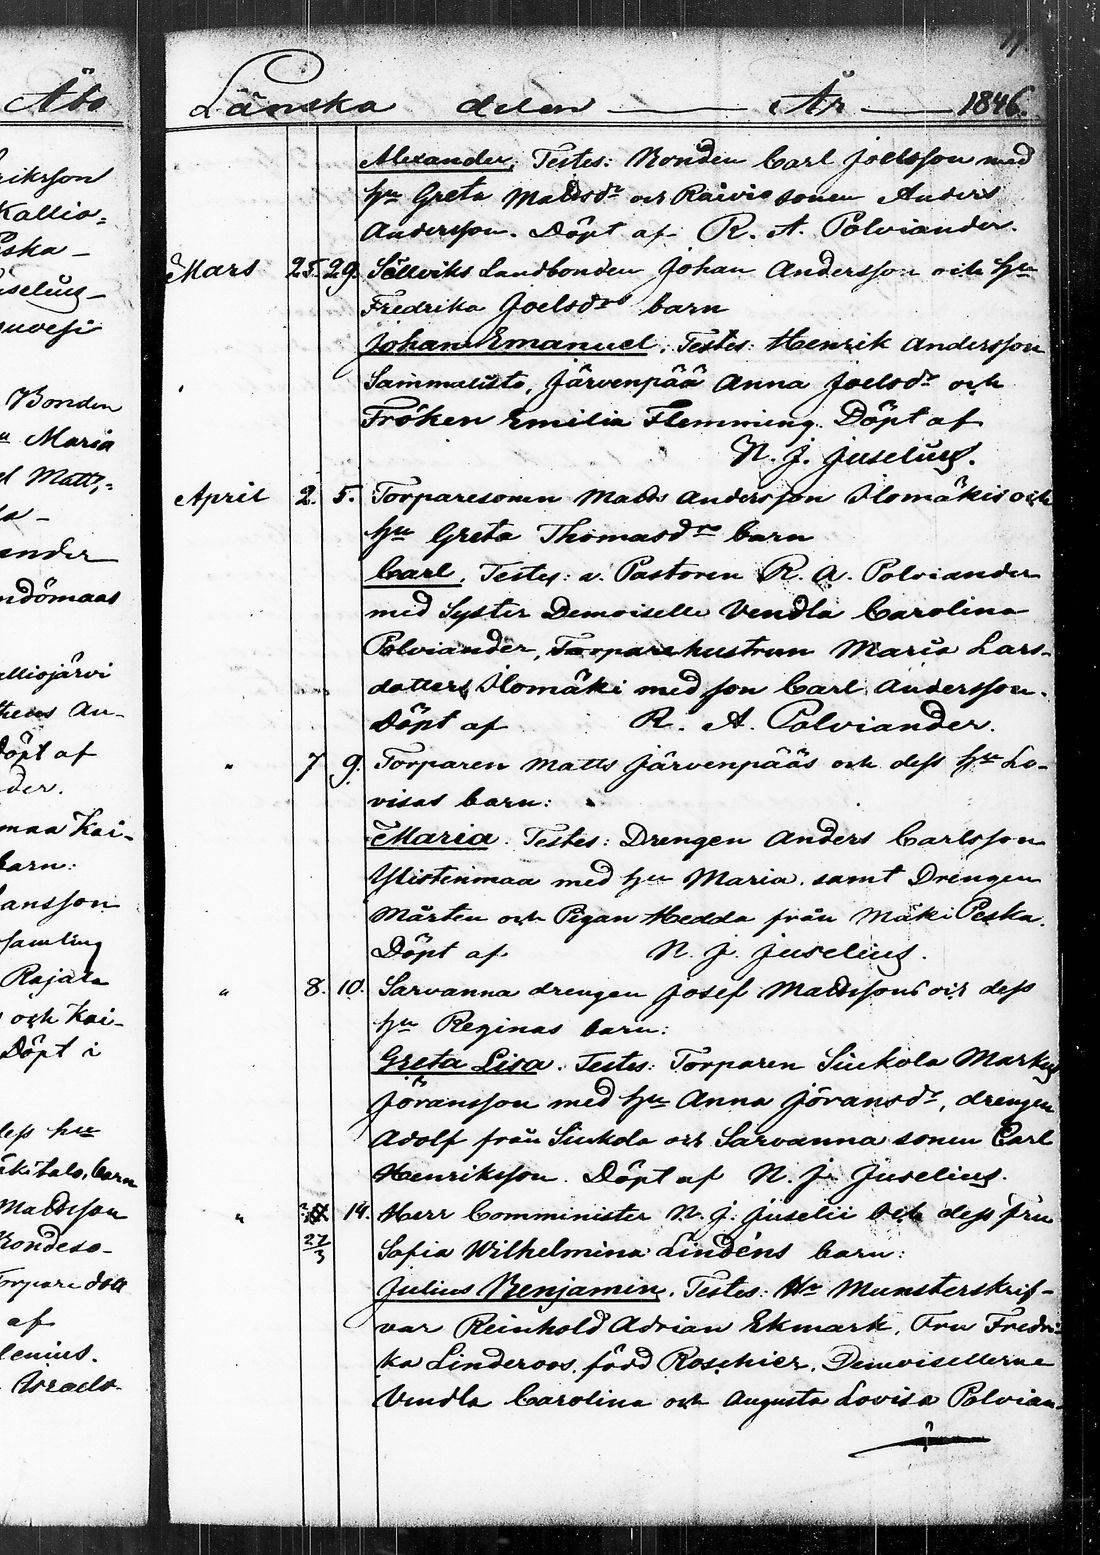 Åbo
Länska delen År 1846.
rikson
Kallio=
Peska -
iselius -
ouvesi
Bonden
u Maria
el Matts=
la -
ender
ndömaas
alliojärvi
theus An-
Döpt af
der.
maa Kai-
barn:
ansson
samling
Rajala
och Kai-
Döpt i
dess hu
äkitalo, barn
Mattsson
Bondeso-
Torpare dott
af
lenius.
Israels-
Alexander, Testes: Bonden Carl Joelsson med
hu Greta Mattsdr och Raivio sonen Anders
Andersson. Döpt af R. A. Polviander.
Mars 25. 29. Söllviks Landbonden Johan Andersson och hu
Fredrika Joelsdrs barn
Johan Emanuel. Testes: Henrik Andersson
Sammalisto, Järvenpää Anna Joelsdr och
Fröken Emilia Flemming. Döpt af
N. J. Juselius.
April 2. 5. Torparesonen Matts Andersson Ilomäkis och
hu Greta Thomasdrs barn
Carl. Testes: v. Pastoren R. A. Polviander
med Syster Demoiselle Vendla Carolina
Polviander, Torparehustrun Maria Lars-
dotter Ilomäki med son Carl Andersson.
Döpt af R. A. Polviander.
" 7 9. Torparen Matts Järvenpääs och dess hu Lo-
visas barn:
Maria. Testes: Drengen Anders Carlsson
Ylistenmaa med hu Maria. samt Drengen
Mårten och Pigan Hedda från Mäki Peska.
Döpt af N. J. Juselius.
" 8. 10. Sarvanna drengen Josef Mattssons och dess
hu Reginas barn:
Greta Lisa. Testes: Torparen Siukola Markus
Jöransson med hu Anna Jöransdr, drengen
Adolf från Siukola och Sarvanna sonen Carl
Henriksson. Döpt af N. J. Juselius.
" 27/3 14. Herr Comminister N. J. Juselii och dess fru
Sofia Wilhelmina Lindéns barn:
Julius Benjamin. Testes: Hr Munsterskrif-
var Reinhold Adrian Ekmark, Fru Fredri-
ka Linderoos, född Roschier, Demoisellerne
Vendla Carolina och Augusta Lovisa Polvian-